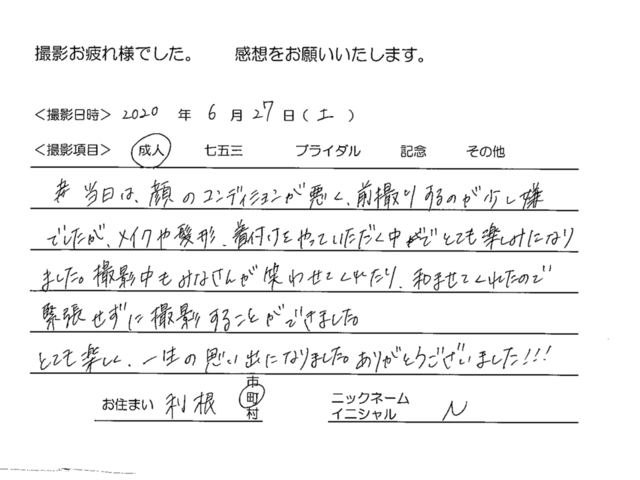 撮影お疲れ様でした。　感想をお願いいたします。
＜撮影日時＞ 2020 年 6 月 27 日（土）
＜撮影項目＞ 成人 七五三 ブライダル 記念 その他
当日は、顔のコンディションが悪く、前撮りするのが少し嫌
でしたが、メイクや髪形、着付けをやっていただく中でとても楽しみになり
ました。撮影中もみなさんが笑わせてくれたり、和ませてくれたので
緊張せずに撮影することができました。
とても楽しく、一生の思い出になりました。ありがとうございました!!!
お住まい 利根 市町村 ニックネーム イニシャル N